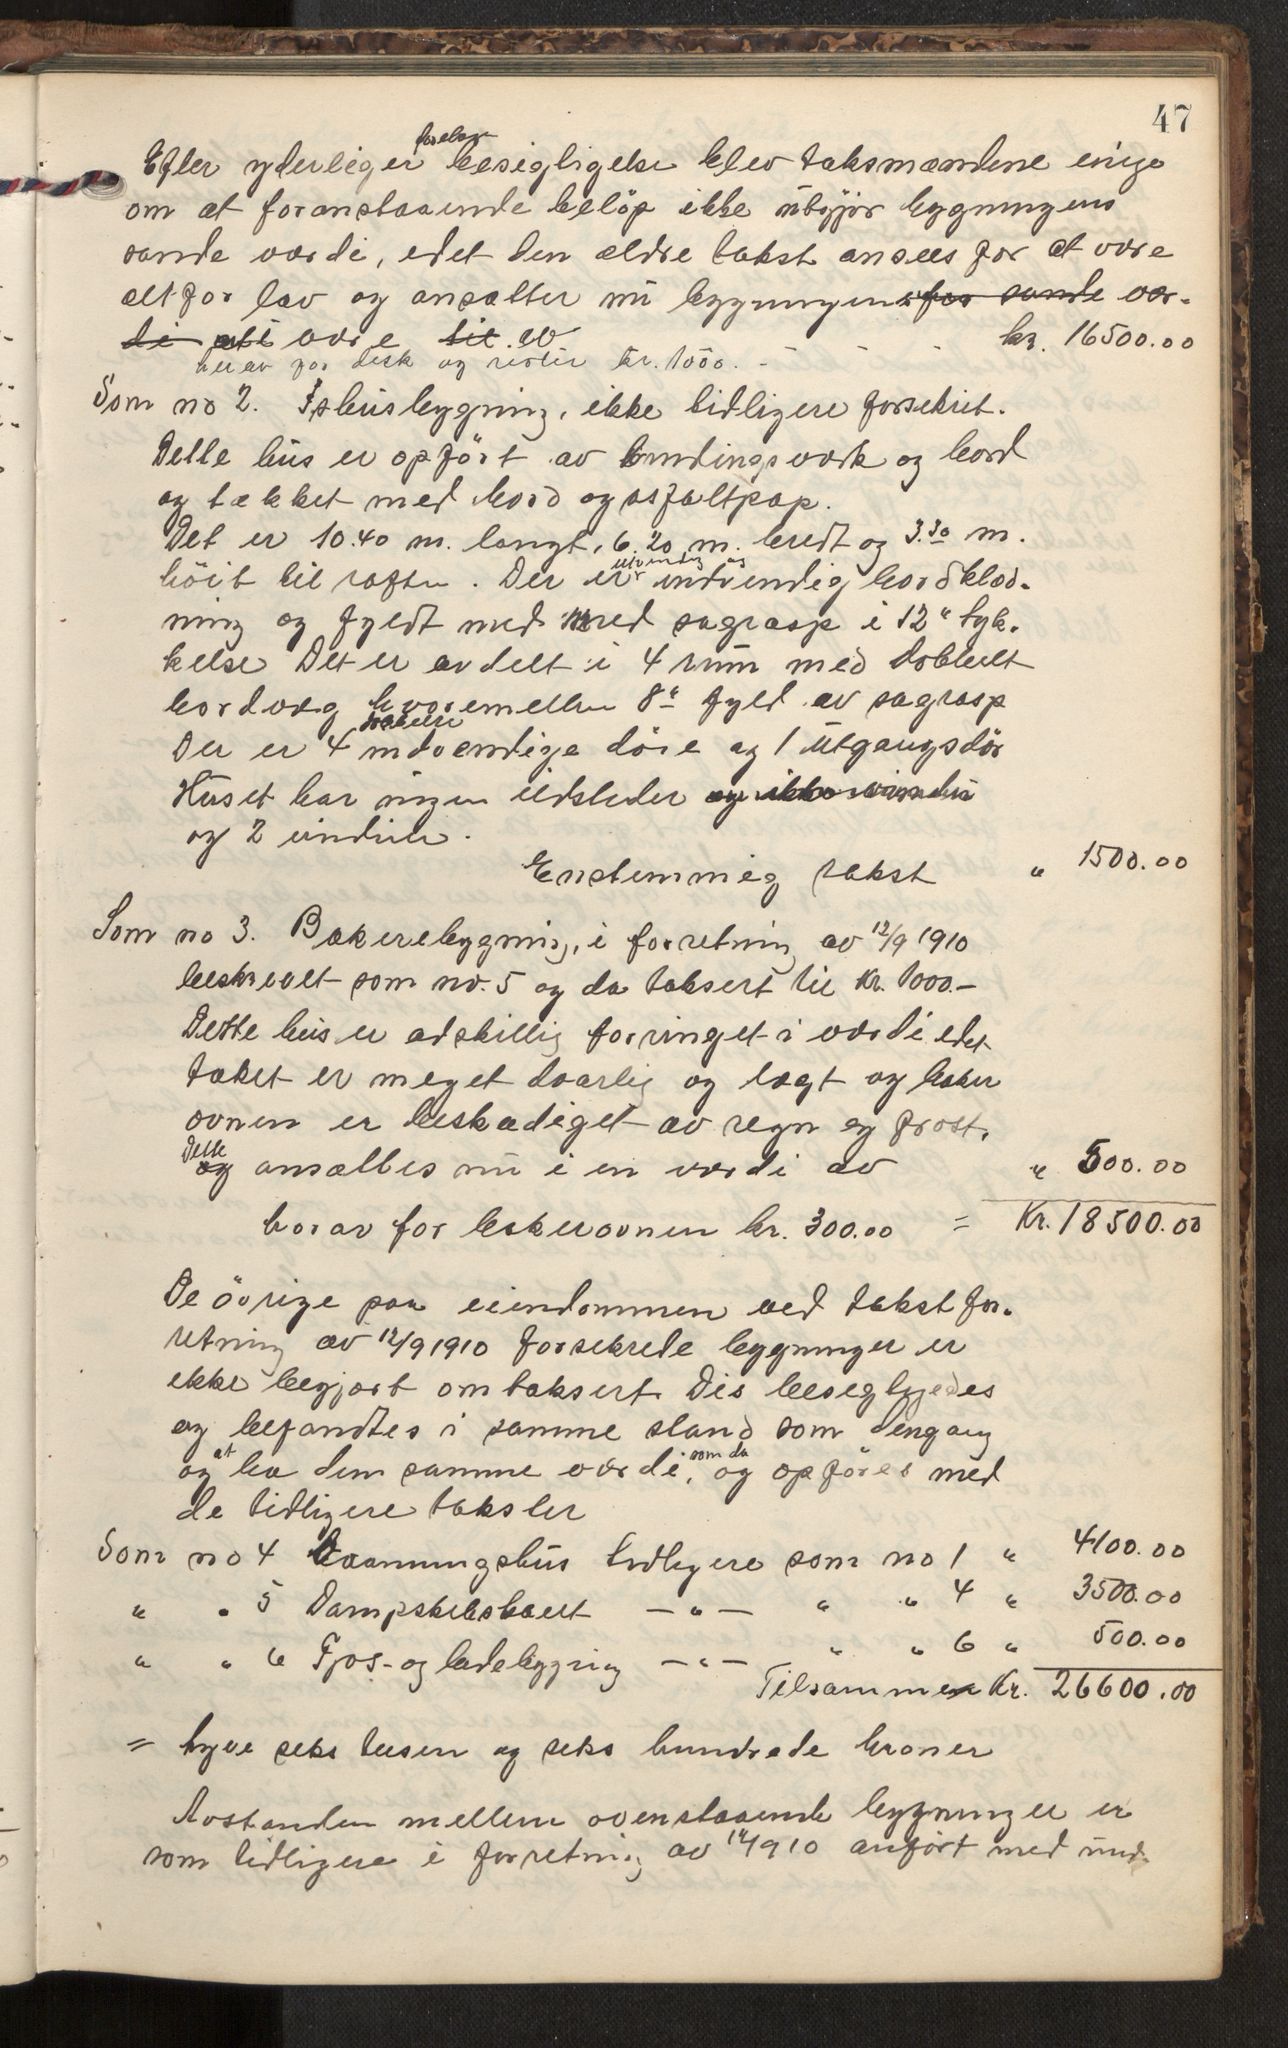 47
Efter yderliger foretage besigtigelse blev taksmændene enige
om at foranstaaende beløp ikke utgjør bygningens
sande værdi, idet den ældre takst ansees for at være
altfor lav og ansætter nu bygningens for sande vær-
di at være til av kr. 16500.00
herav for disk og reoler kr. 1000.-
Som no 2. Ishusbygning, ikke tidligere forsikret.
Dette hus er opført av bindingsverk og bord
og tækket med bord og asfaltpap.
Det er 10.40 m. langt, 6.20 m. bredt og 3.30 m.
höit til raften. Der er utvendig og indvendig bordklæd-
ning og fyldt med sagrasp i 12" tyk-
kelse Det er avdelt i 4 rum med dobbelt
bordvæg hvoremellem 8" fyld av sagrasp
Der er 4 dobbelte indvendige döre og 1 utgangsdör
Huset har ingen ildsteder og ikke vinduer
og 2 vinduer.
Enstemmig takst " 1500.00
Som no 3. Bakerebygning, i forretning av 12/9 1910
beskrevet som no. 5 og da taksert til kr. 1000.-
Dette hus er adskillig forringet i værdi idet
taket er meget daarlig og lægt og baker
ovnen er beskadiget av regn og frost,
og Dette ansættes nu i en værdi av " 500.00
horav for bakerovnen kr. 300.00 = Kr. 18500.00
De övrige paa eiendommen ved takstfor-
retning av 12/9 1910 forsikrede bygninger er
ikke begjært omtaksert. Dis besigtigedes
og befandtes i samme stand som dengang
og at ha den samme værdi, som da og opföres med
de tidligere takster
Som no 4 Vaaningshus tidligere som no 1 " 4100.00
" " 5 Dampskibsbaat — " — " " 4 " 3500.00
" " 6 Fjos- og ladebygning — " — " " 6 " 500.00
Tilsammen Kr. 26600.00
= tyve seks tusen og seks hundrede kroner
Avstanden mellem ovenstaaende bygninger er
som tidligere i forretning av 12/9 10 anfört med und-